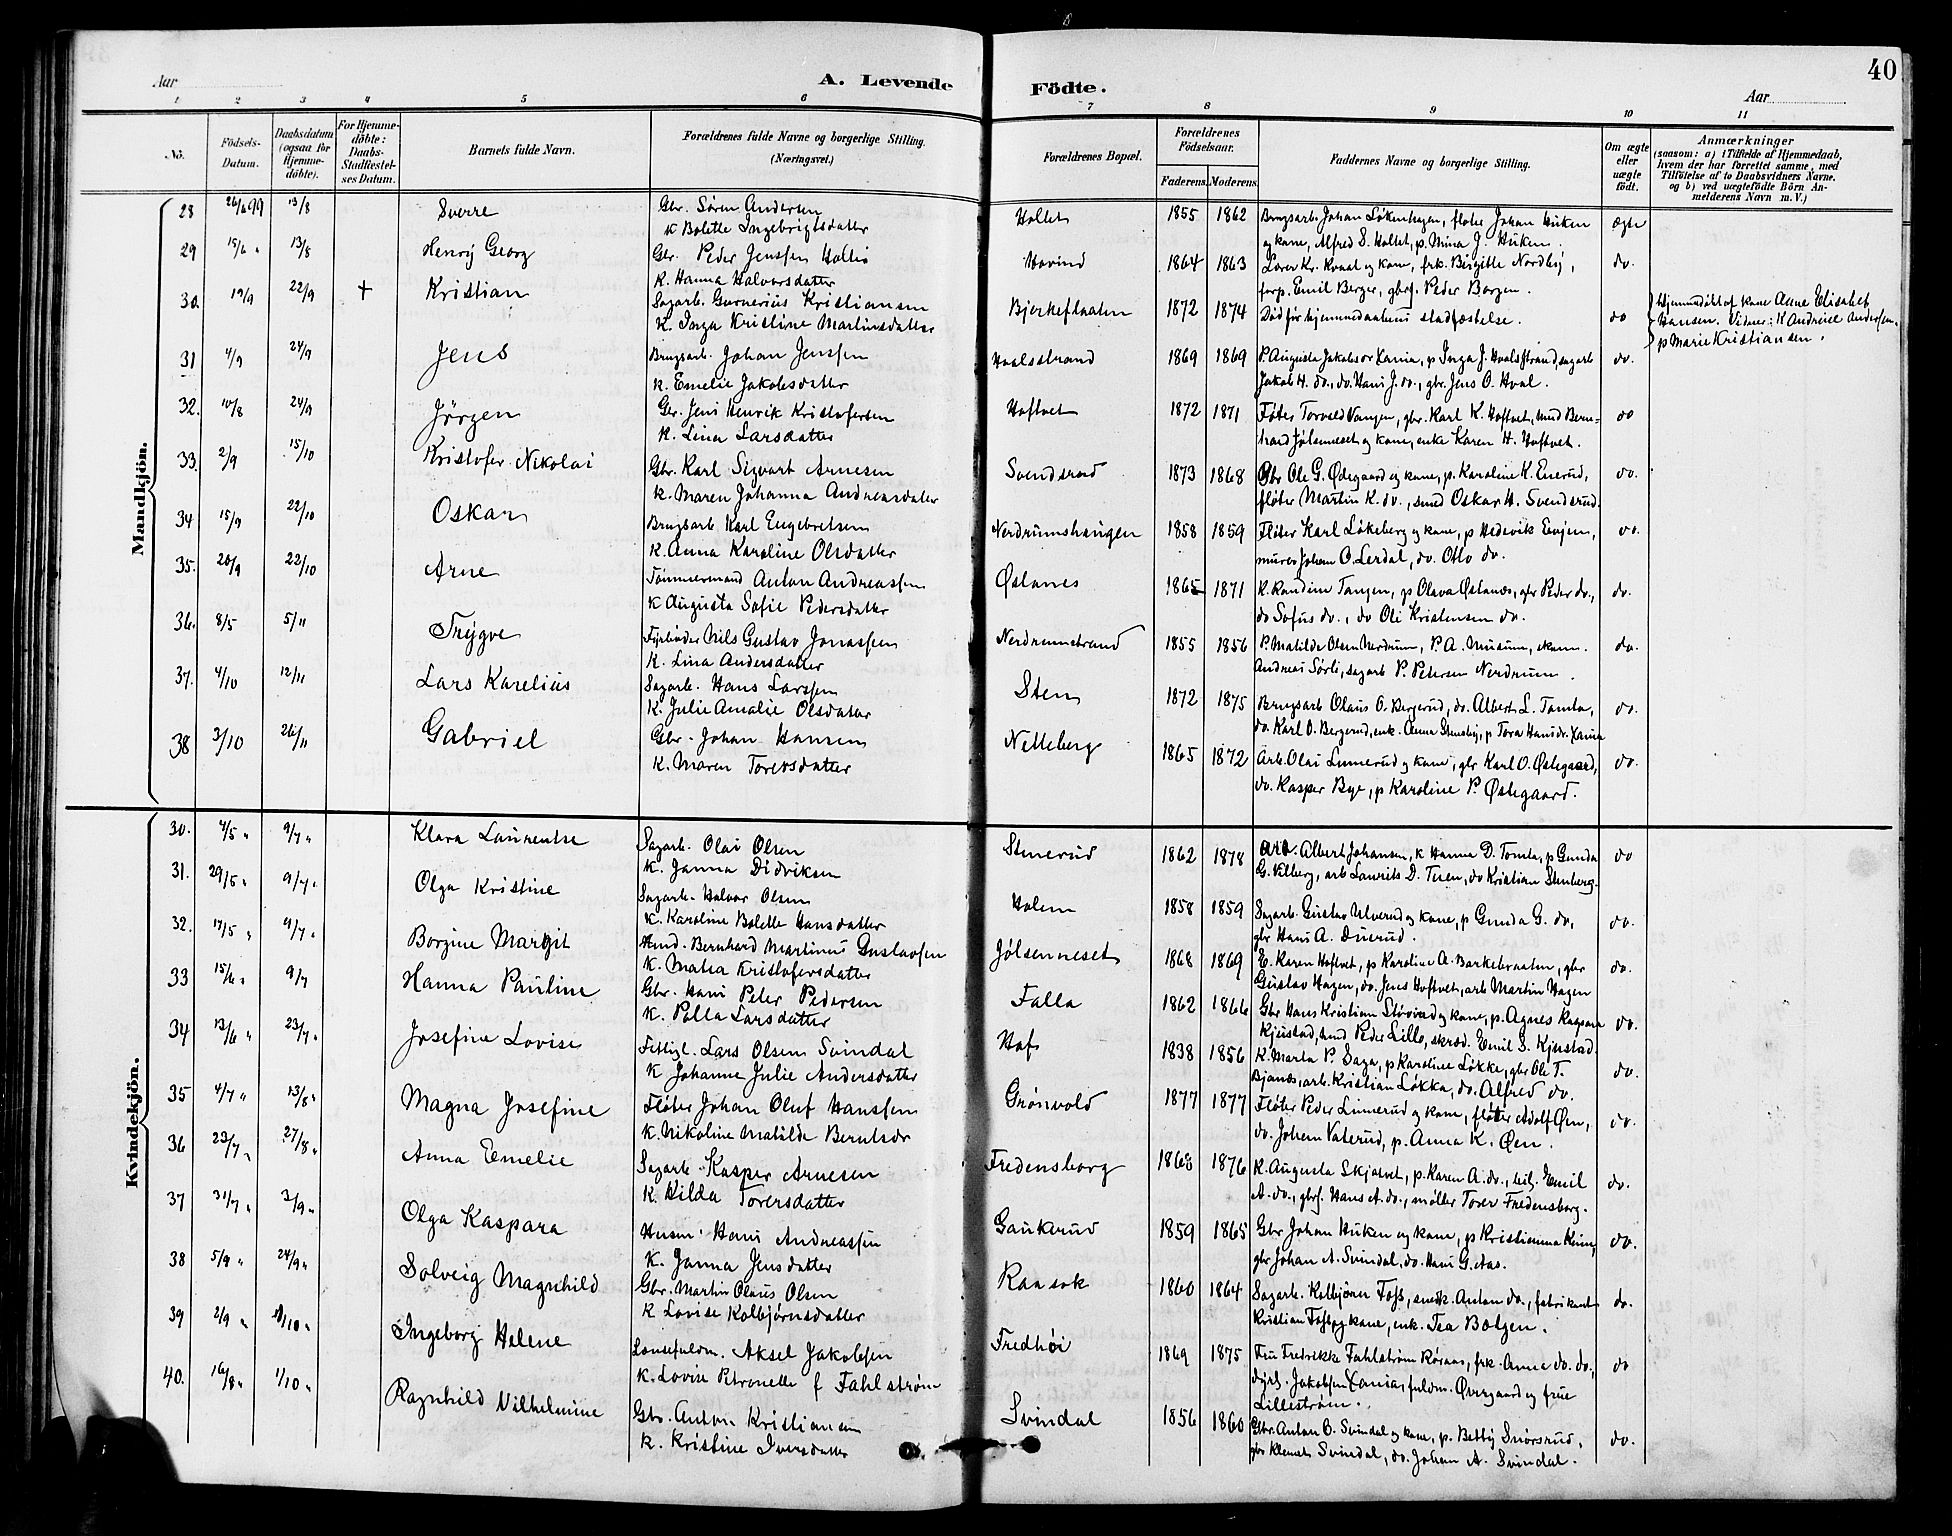 40
Aar
A. Levende Födte.
Aar
1 2 3 4 5 6 7 8 9 10 11
No.
Födsels-Datum.
Daabsdatum (ogsaa for Hjemme-döbte).
For Hjemme-döbte: Daabs-Stadfæstel-ses Datum.
Barnets fulde Navn.
Forældrenes fulde Navne og borgerlige Stilling. (Næringsvei.)
Forældrenes Bopæl.
Forældrenes Födselsaar.
Faderens. Moderens.
Faddernes Navne og borgerlige Stilling.
Om ægte eller uægte födt.
Anmærkninger
(saasom: a) i Tilfælde af Hjemmedaab, hvem der har forrettet samme, med Tilföielse af to Daabsvidners Navne, og b) ved uægtefödte Börn An-melderens Navn m. V.)
Mandkjön.
28 26/6 99 13/8 Sverre Gbr. Sören Andersen Holtet 1855 1862 Brugsarb. Johan Løkenhagen, fløter Johan Huken ægte
K Bolette Ingebrigtsdatter og kone, Alfred S. Holtet, p. Mina J. Huken.
29 15/6 " 13/8 Henrÿ Georg Gbr. Peder Jenssen Hovind 1864 1863 Lærer Kr. Kvaal og kone, frk. Birgitte Nordbÿ, do.
K. Hanna Halvorsdatter forp. Emil Berger, gbrs. Peder Borgen.
30. 19/9 22/9 + Kristian Sagarb. Gunerius Kristiansen Bjerkeflaaten 1872 1874 Död før hjemmedaabens stadfæstelse. do Hjemmedöbt af kone Anne Elisabet
K. Inga Kristine Martinsdatter Hansen. Vidner: K Andrine Andersen,
p Marie Kristiansen.
31 4/9 24/9 Jens Brugsarb. Johan Jenssen Hvalsstrand 1869 1869 P. Augusta Jakobsdr Xania, p Inga J. Hvalsstrand, sagarb do.
K. Emelie Jakobsdatter Jakob H. do., do. Hans J. do., gbr. Jens O. Hval.
32. 10/8 24/9 Jörgen Gbr. Jens Henrik Kristofersen Hoftvet 1872 1871 Fløter Torvald Vangen, gbr. Karl K. Hoftvet, hmd Bern-do
K. Lina Larsdatter hard Jølsenneset og kone, enke Karen H. Hoftvet.
33. 2/9 15/10 Kristofer Nikolai Gbr. Karl Sigvart Arnesen Svendsrud 1873 1868 Gbr Ole G. Ødegaard og kone, p. Karoline K. Enerud, do.
K. Maren Johanna Andreasdatter fløter Martin K. do., smed Oskar H. Svendsrud.
34 15/9 22/10 Oskar Brugsarb Karl Engebretsen Nerdrumshaugen 1858 1859 Fløter Karl Løkeberg og kone, p Hedevik Evjen, do.
K. Anna Karoline Olsdatter murer Johan O. Lerdal, do. Otto do.
35. 20/9 22/10 Arne Tömmermand Anton Andreassen Østanes 1865 1871 K. Randine Tangen, p Olava Østanes, gbr Peder do., do.
K Augusta Sofie Pedersdatter do Sofus do., do Ole Kristensen do.
36. 8/5 5/11 Trÿgve Fyrbøder Nils Gustav Jonassen Nerdrumstrand 1855 1856 P. Matilde Olsen Nerdrum, P. A. Musum, do.
K. Lina Andersdatter Andreas Sørli, sagarb P. Petersen Nerdrum.
37. 4/10 12/11 Lars Karelius Sagarb. Hans Larssen Sten 1872 1875 Brugsarb Olaus O. Bergerud, do. Albert L. Tomta, do.
K. Julie Amalie Olsdatter do. Karl O. Bergerud, enk. Anna Stensbÿ, p Tora Hansdr. Xania
38 3/10 26/11 Gabriel Gbr. Johan Hansen Netteberg 1865 1872 Arb. Olai Linnerud og kone, gbr Karl O. Østegaard, do.
K. Maren Torersdatter do. Kasper Bye, p Karoline P. Østegaard.
Kvindekjön.
30. 4/5 " 9/7 " Klara Laurentse Sagarb. Olai Olsen Stenerud 1862 1878 Arb. Albert Johansen, K Hanna D. Tomta, p Gunda do
K. Janna Didriksen G. Vilberg, arb Laurits D. Tuen, do Kristian Stenberg.
31. 29/5 " 9/7 " Olga Kristine Sagarb. Halvor Olsen Holem 1858 1859 Sagarb. Gustav Ulverud og kone, p Gunda G. do, do.
K. Karoline Bolette Hansdatter gbr Hans A. Duerud.
32. 17/5 " 9/7 " Borgine Margit Hmd. Bernhard Martinus Gustavsen Jølsenneset 1868 1869 E. Karen Hoftvet, p Karoline A. Barkebraaten, gbr do.
K. Matea Kristofersdatter Gustav Hagen, do. Jens Hoftvet, arb Martin Hagen
33 15/6 " 9/7 Hanna Pauline Gbr. Hans Peter Pedersen Falla 1862 1866 Gbr Hans Kristian Støvind og kone, p. Agnes Kaspara do.
K. Polla Larsdatter Kjustad, hmd Peder Lillo, skræd. Emil S. Kjustad.
34 13/6 " 23/7 " Josefine Lovise Fattigl. Lars Olsen Svindal Hof 1838 1856 K. Marta P. Saga, p Karoline Løkke, gbr Ole T. do.
K Johanne Julie Andersdatter Bjanes, arb. Kristian Løkka, do. Alfred do.
35 4/7 " 13/8 " Magna Josefine Fløter Johan Oluf Hanssen Grønvold 1877 1877 Fløter Peder Linnerud og kone, fløter Adolf Øen, do.
K. Nikoline Matilde Berntsdr do. Johan Vaterud, p. Anna K. Øen.
36 23/7 " 27/8 " Anna Emelie Sagarb. Kasper Arnesen Fredensborg 1868 1876 K. Augusta Skjatvet, p. Karen A. do., Emil do.
K Hilda Torersdatter A. do., gbrs. Hans A. do., møller Torer Fredensborg.
37 31/7 " 3/9 " Olga Kaspara Husm. Hans Andreassen Gaukerud 1859 1865 Gbr Johan Huken og kone, p Kristianna Heim, do.
K. Janna Jensdatter gbr Johan A. Svindal, do. Hans G. Aas.
38 5/9 " 24/9 " Solveig Magnhild Gbr. Martin Olaus Olsen Ramsok 1860 1864 Sagarb. Kolbjørn Foss, snedk. Anton do., fabrikarb do.
K Lovise Kolbjørnsdatter Kristian Foss og kone, enk. Tea Bolgen.
39 2/9 " 1/10 " Ingeborg Helene Lensfuldm. Aksel Jakobsen Fredhöi 1869 1875 Fru Fredrikke Fahlstrøm Røraas, frk. Anna do. do., do
K. Lovise Petronelle f Fahlstrøm Jakobsen Xania, fuldm. Overgaard og frue
Lillestrøm.
40. 16/8 " 1/10 " Ragnhild Vilhelmine Gbr. Anton Kristiansen Svindal 1856 1860 Gbr. Anton O. Svindal og kone, p. Bettÿ Snorsrud, do.
K. Kristine Iversdatter gbr Klemet Svindal, do. Johan A. Svindal.